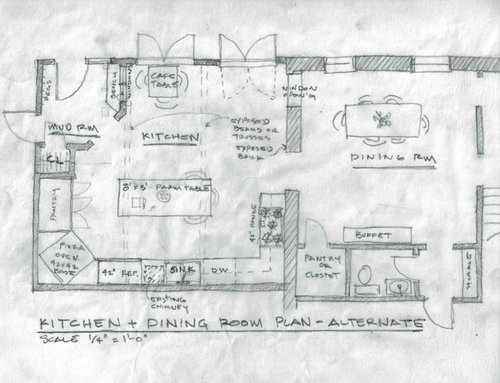 CAFE
TABLE
BENCH
PEGS
WINDOW
OPEN'G
MUD RM
KITCHEN
EXPOSED
BEAMS OR
TRUSSES
EXPOSED
BRICK
DINING RM
CL.
8' x 3' FARM TABLE
PANTRY
42" RANGE
BUFFET
PIZZA
OVEN
42x42
BASE
42" REF.
SINK
DW
PANTRY
OR
CLOSET
EXISTING
CHIMNEY
KITCHEN + DINING ROOM PLAN - ALTERNATE
SCALE 1/4" = 1'-0"